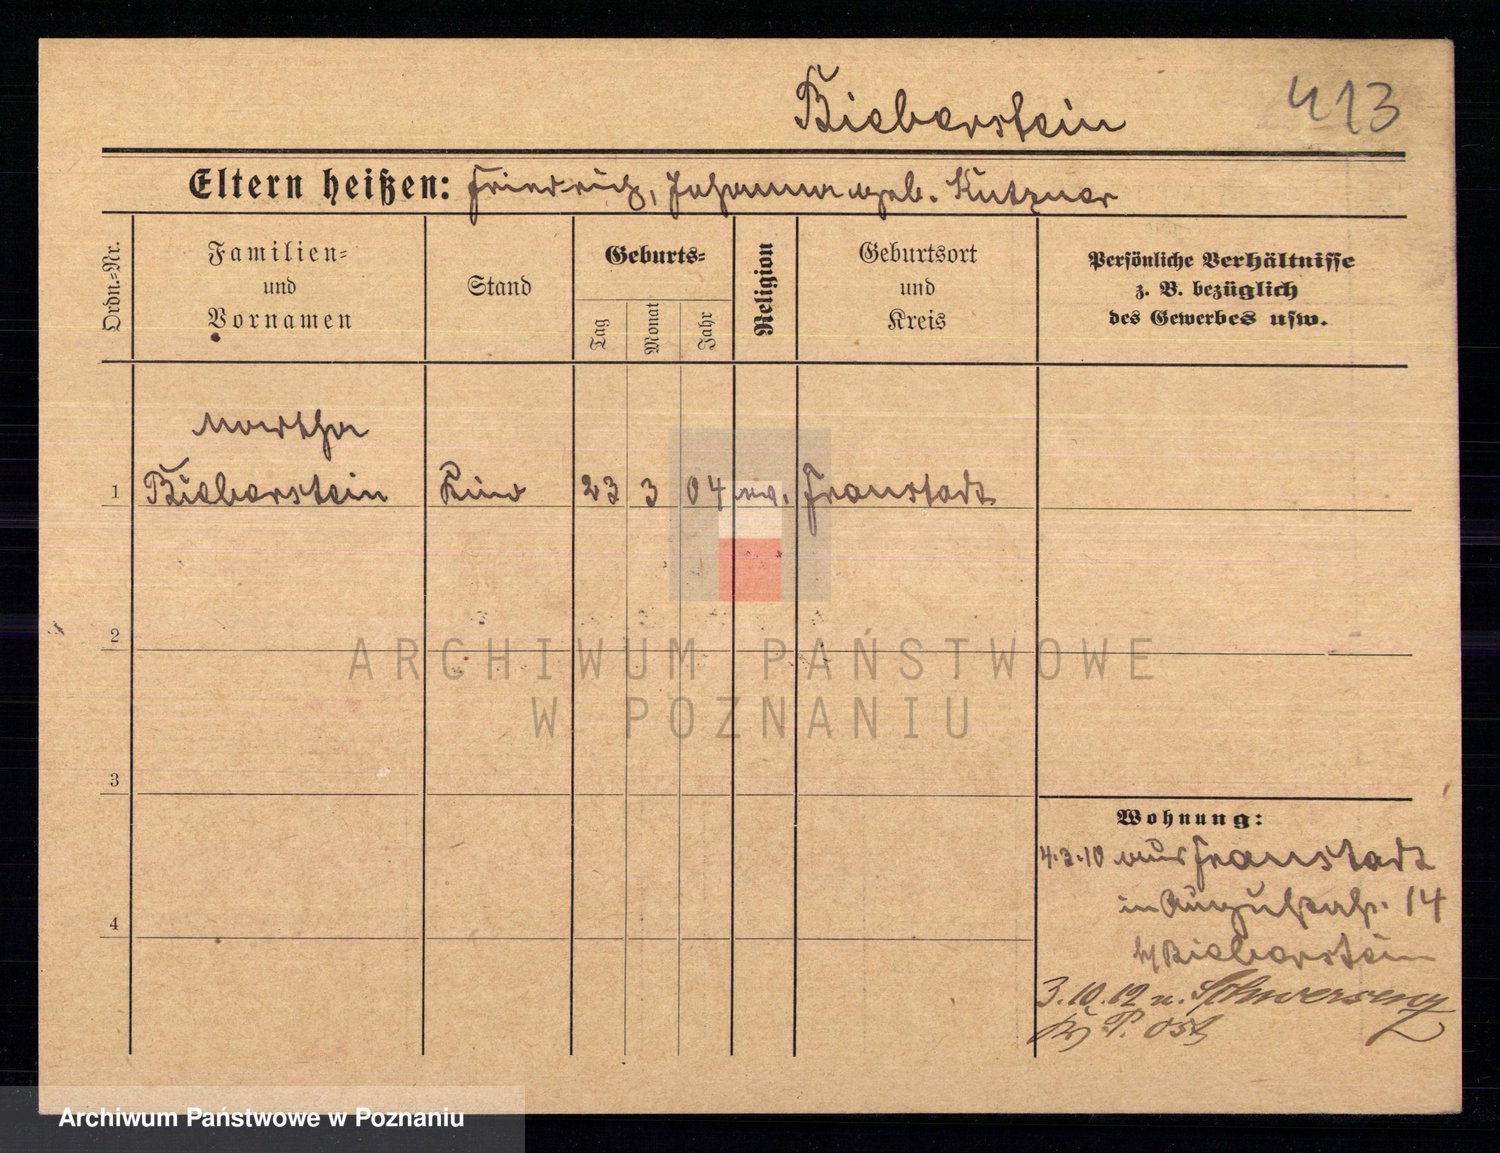 Bieberstein
413
Eltern heißen: Friedrich, Johanna geb. Kutzner
Ordn.=Nr.
Familien=
und
Vornamen
Stand
Geburts=
Tag
Monat
Jahr
Religion
Geburtsort
und
Kreis
Persönliche Verhältnisse
z. B. bezüglich
des Gewerbes usw.
Martha
1 Bieberstein Kind 23 3 04 ev. Fraustadt
2
ARCHIWUM PAŃSTWOWE
W POZNANIU
3
4
Wohnung:
4.3.10 aus Fraustadt
in Augustastr. 14
b/ Bieberstein
3.10.12 n. Schwersenz
Kr. P. Ost
Archiwum Państwowe w Poznaniu